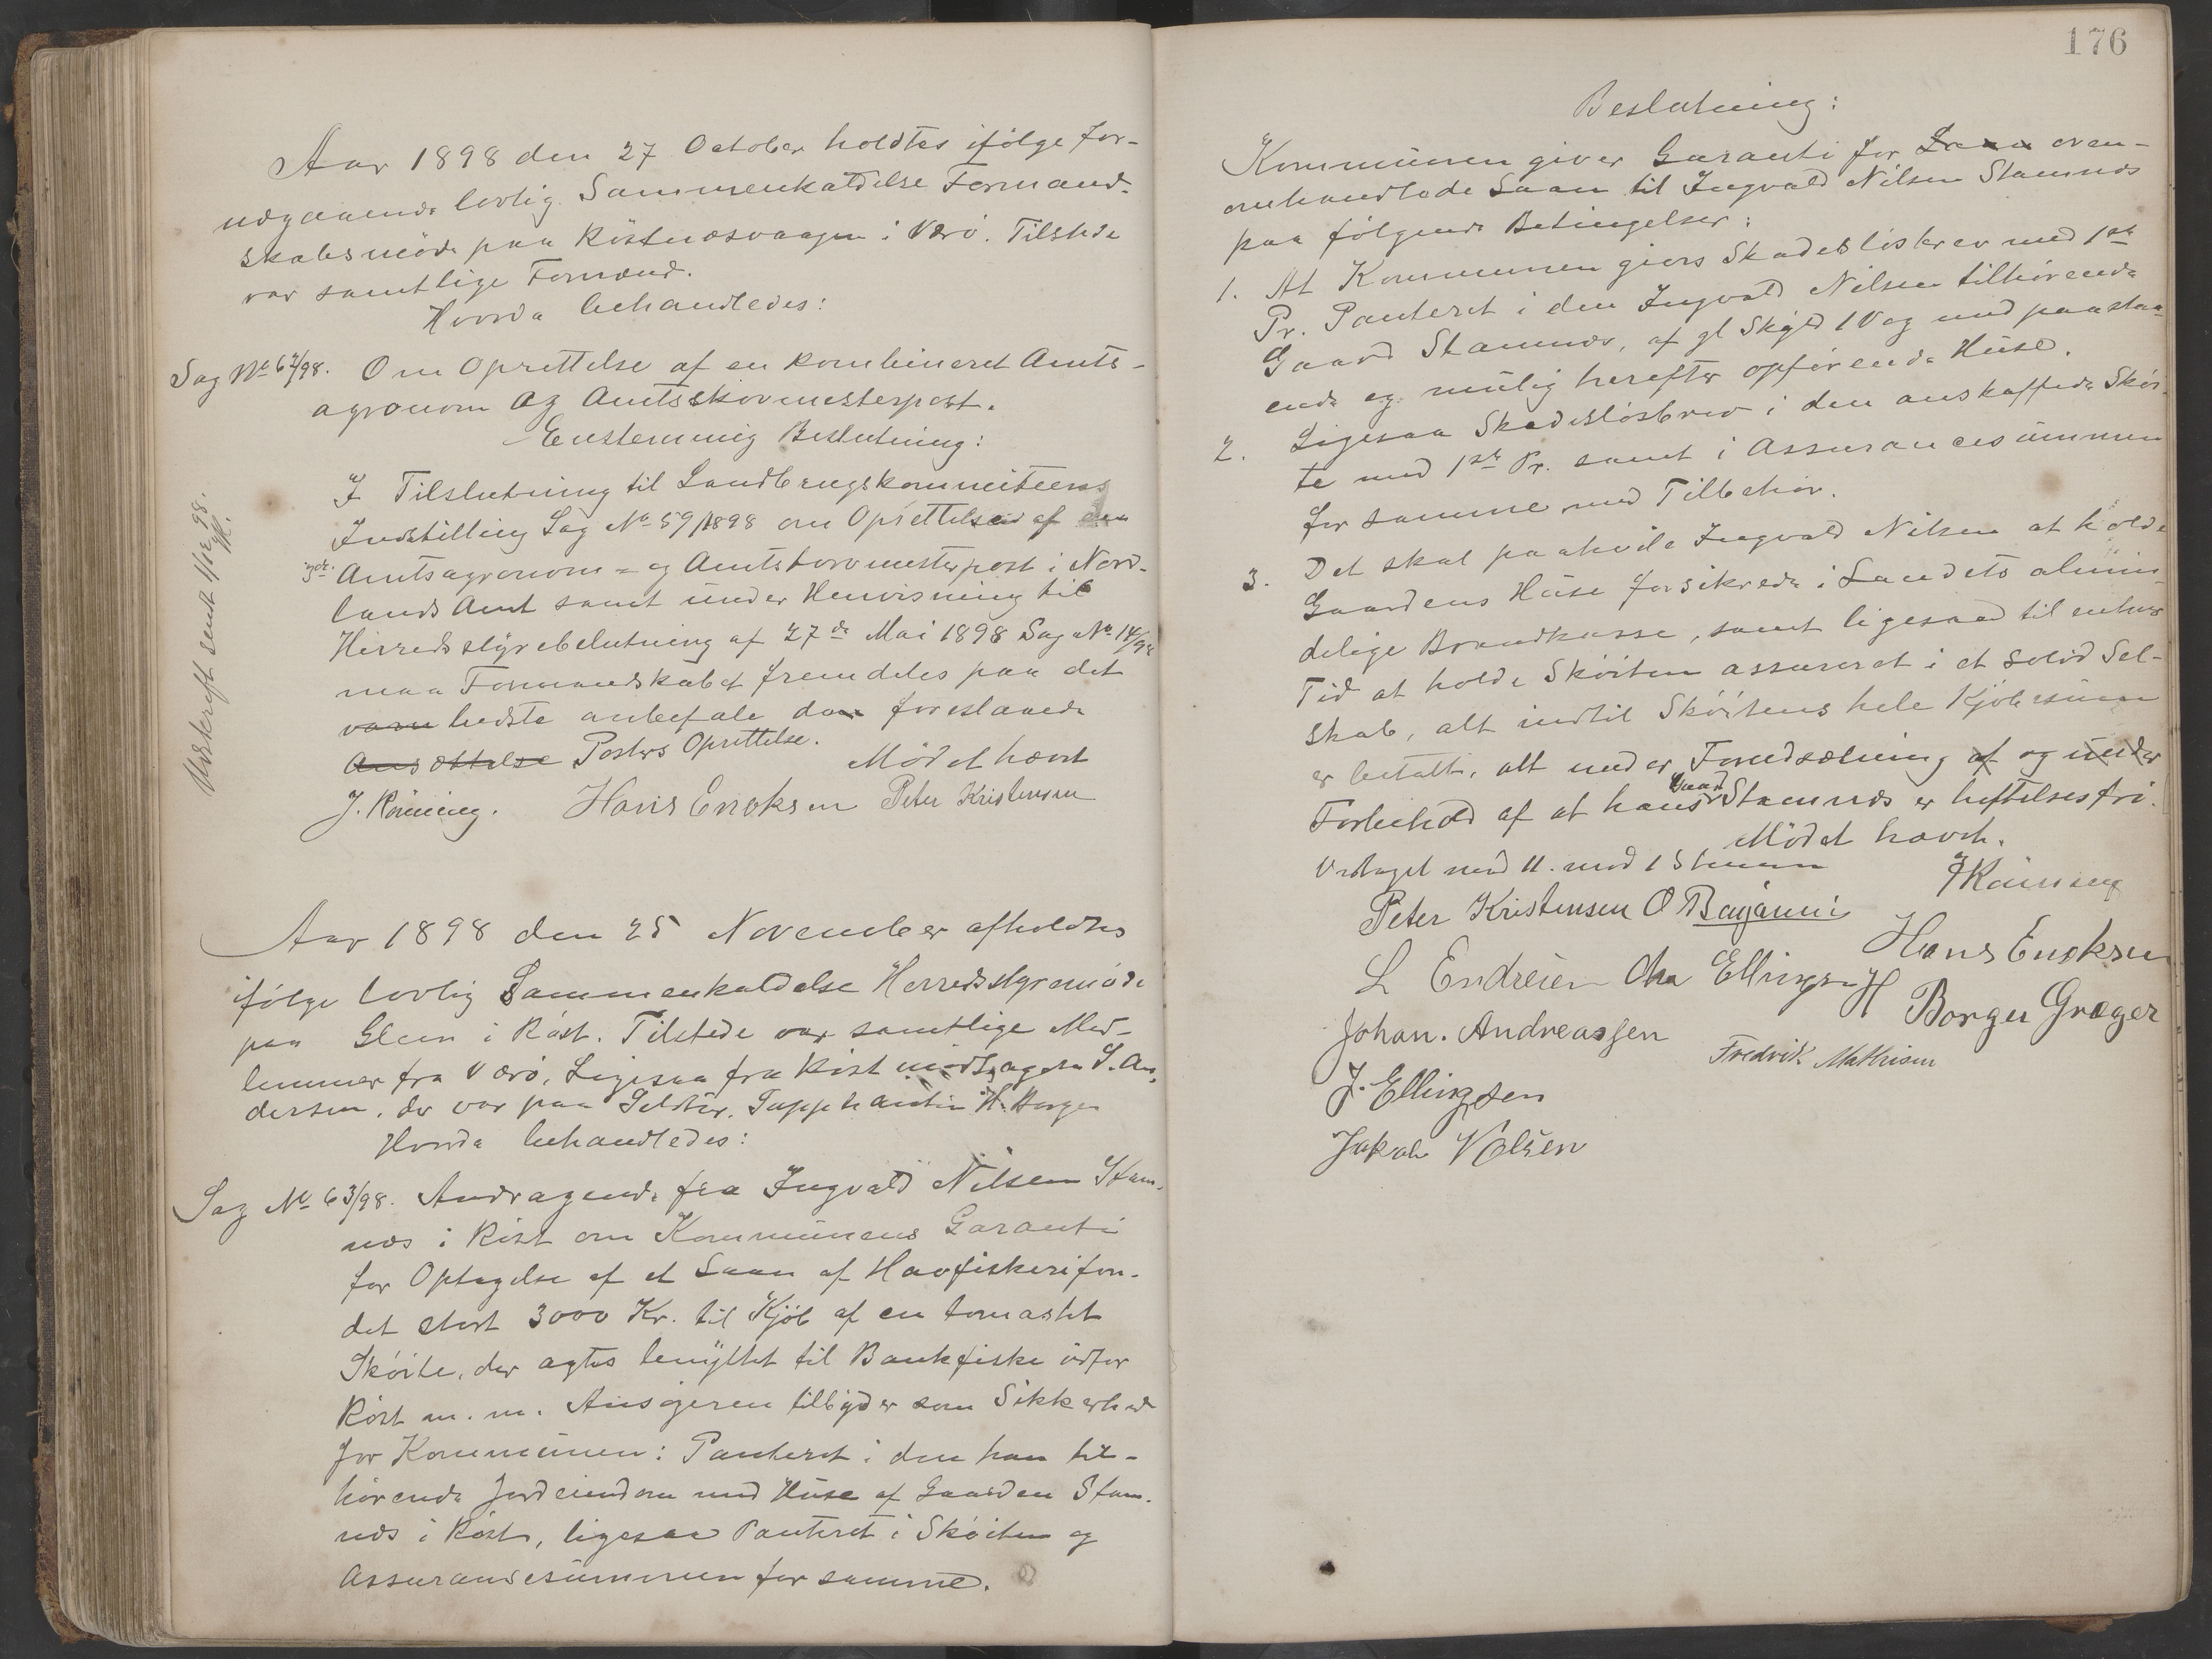 Aar 1898 den 27 October holdtes ifölge for-
udgaaende lovlig Sammenkaldelse Formand-
skabsmöde paa Röstnesvaagen i Værö. Tilstede
var samtlige Formænd.
Hvorda behandledes:
Sag No 62/98. Om Oprettelse af en kombineret Amts-
agronom og Amtsskovmesterpost.
Enstemmig Beslutning:
I Tilslutning til Landbrugskommiteens
Indstilling Sag No 59/1898 om Oprettelse af en
3die Amtsagronom- og Amtsskovmesterpost i Nord-
lands Amt samt under Henvisning til
Herredsstyrebeslutning af 27de Mai 1898 Sag No 14/98
maa Formandskabet fremdeles paa det
varm bedste anbefale den foreslaaede
Ansættelse Postens Oprettelse.
Mödet hævet
J. Rönning. Hans Enoksen Peter Kristensen
Udskrift sendt 1/12 98.
Aar 1898 den 25 November afholdtes
ifölge lovlig Sammenkaldelse Herredsstyremöde
paa Glein i Röst. Tilstede var samtlige Med-
lemmer fra Værö. Ligesaa fra Röst undtagen S. An-
dersen, der var paa Seltur. Suppleanten H. Borgen
Hvorda behandledes:
Sag No 63/98. Andragende fra Ingvald Nilsen Stam-
næs i Röst om Kommunens Garanti
for Optagelse af et Laan af Havfiskerifon-
det stort 3000 Kr. til Kjöb af en tomastet
Sköite, der agtes benyttet til Bankfiske udfor
Röst m. m. Ansögeren tilbyder som Sikkerhed
for Kommunen: Panteret i den ham til-
hörende Jordeiendom med Huse af Gaarden Stam-
næs i Röst, ligesaa Panteret i Sköiten og
Assurancesummen for samme.
176
Beslutning:
Kommunen giver Garanti for Laan oven-
omhandlede Laan til Ingvald Nilsen Stamnæs
paa fölgende Betingelser:
1. At Kommunen gives Skadeslösbrev med 1ste
Pr. Panteret i den Ingvald Nilsen tilhörende
Gaard Stamnæs, af gl Skyld 1 Vog med paastaa-
ende og mulig herefter opförende Huse.
2. Ligesaa Skadeslösbrev i den anskaffede Sköi-
te med 1ste Pr. samt i Assurancesummen
for samme med Tilbehör.
3. Det skal paahvile Ingvald Nilsen at holde
Gaardens Huse forsikrede i Landets almin-
delige Brandkasse, samt ligesaa til enhver
Tid at holde Sköiten assureret i et solid Sel-
skab, alt indtil Sköitens hele Kjöbesum
er betalt, alt under Forudsætning af og under
Forbehold af at hans Gaard Stamnæs er heftelsesfri.
Mödet hævet.
Vedtaget med 11 mod 1 Stemme
J Rönning
Peter Kristensen O Bagarui
Hans Enoksen
L Endresen Ola Ellingsen
H Borgen Græger
Johan. Andreassen
Fredrik Mathisen
J. Ellingsen
Jakob Nelsen